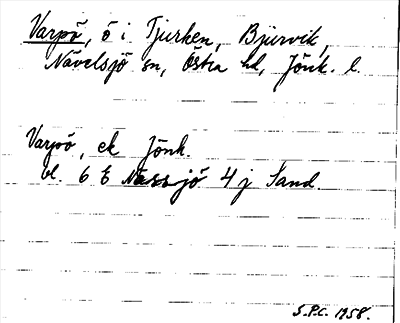 Varpö, ö i Tjurken, Bjurvik,
Nävelsjö sn, Östra hd, Jönk. l.
Varpö, ek Jönk.
bl. 6 E Nässjö 4 j Sand.
S.P.C. 1958.